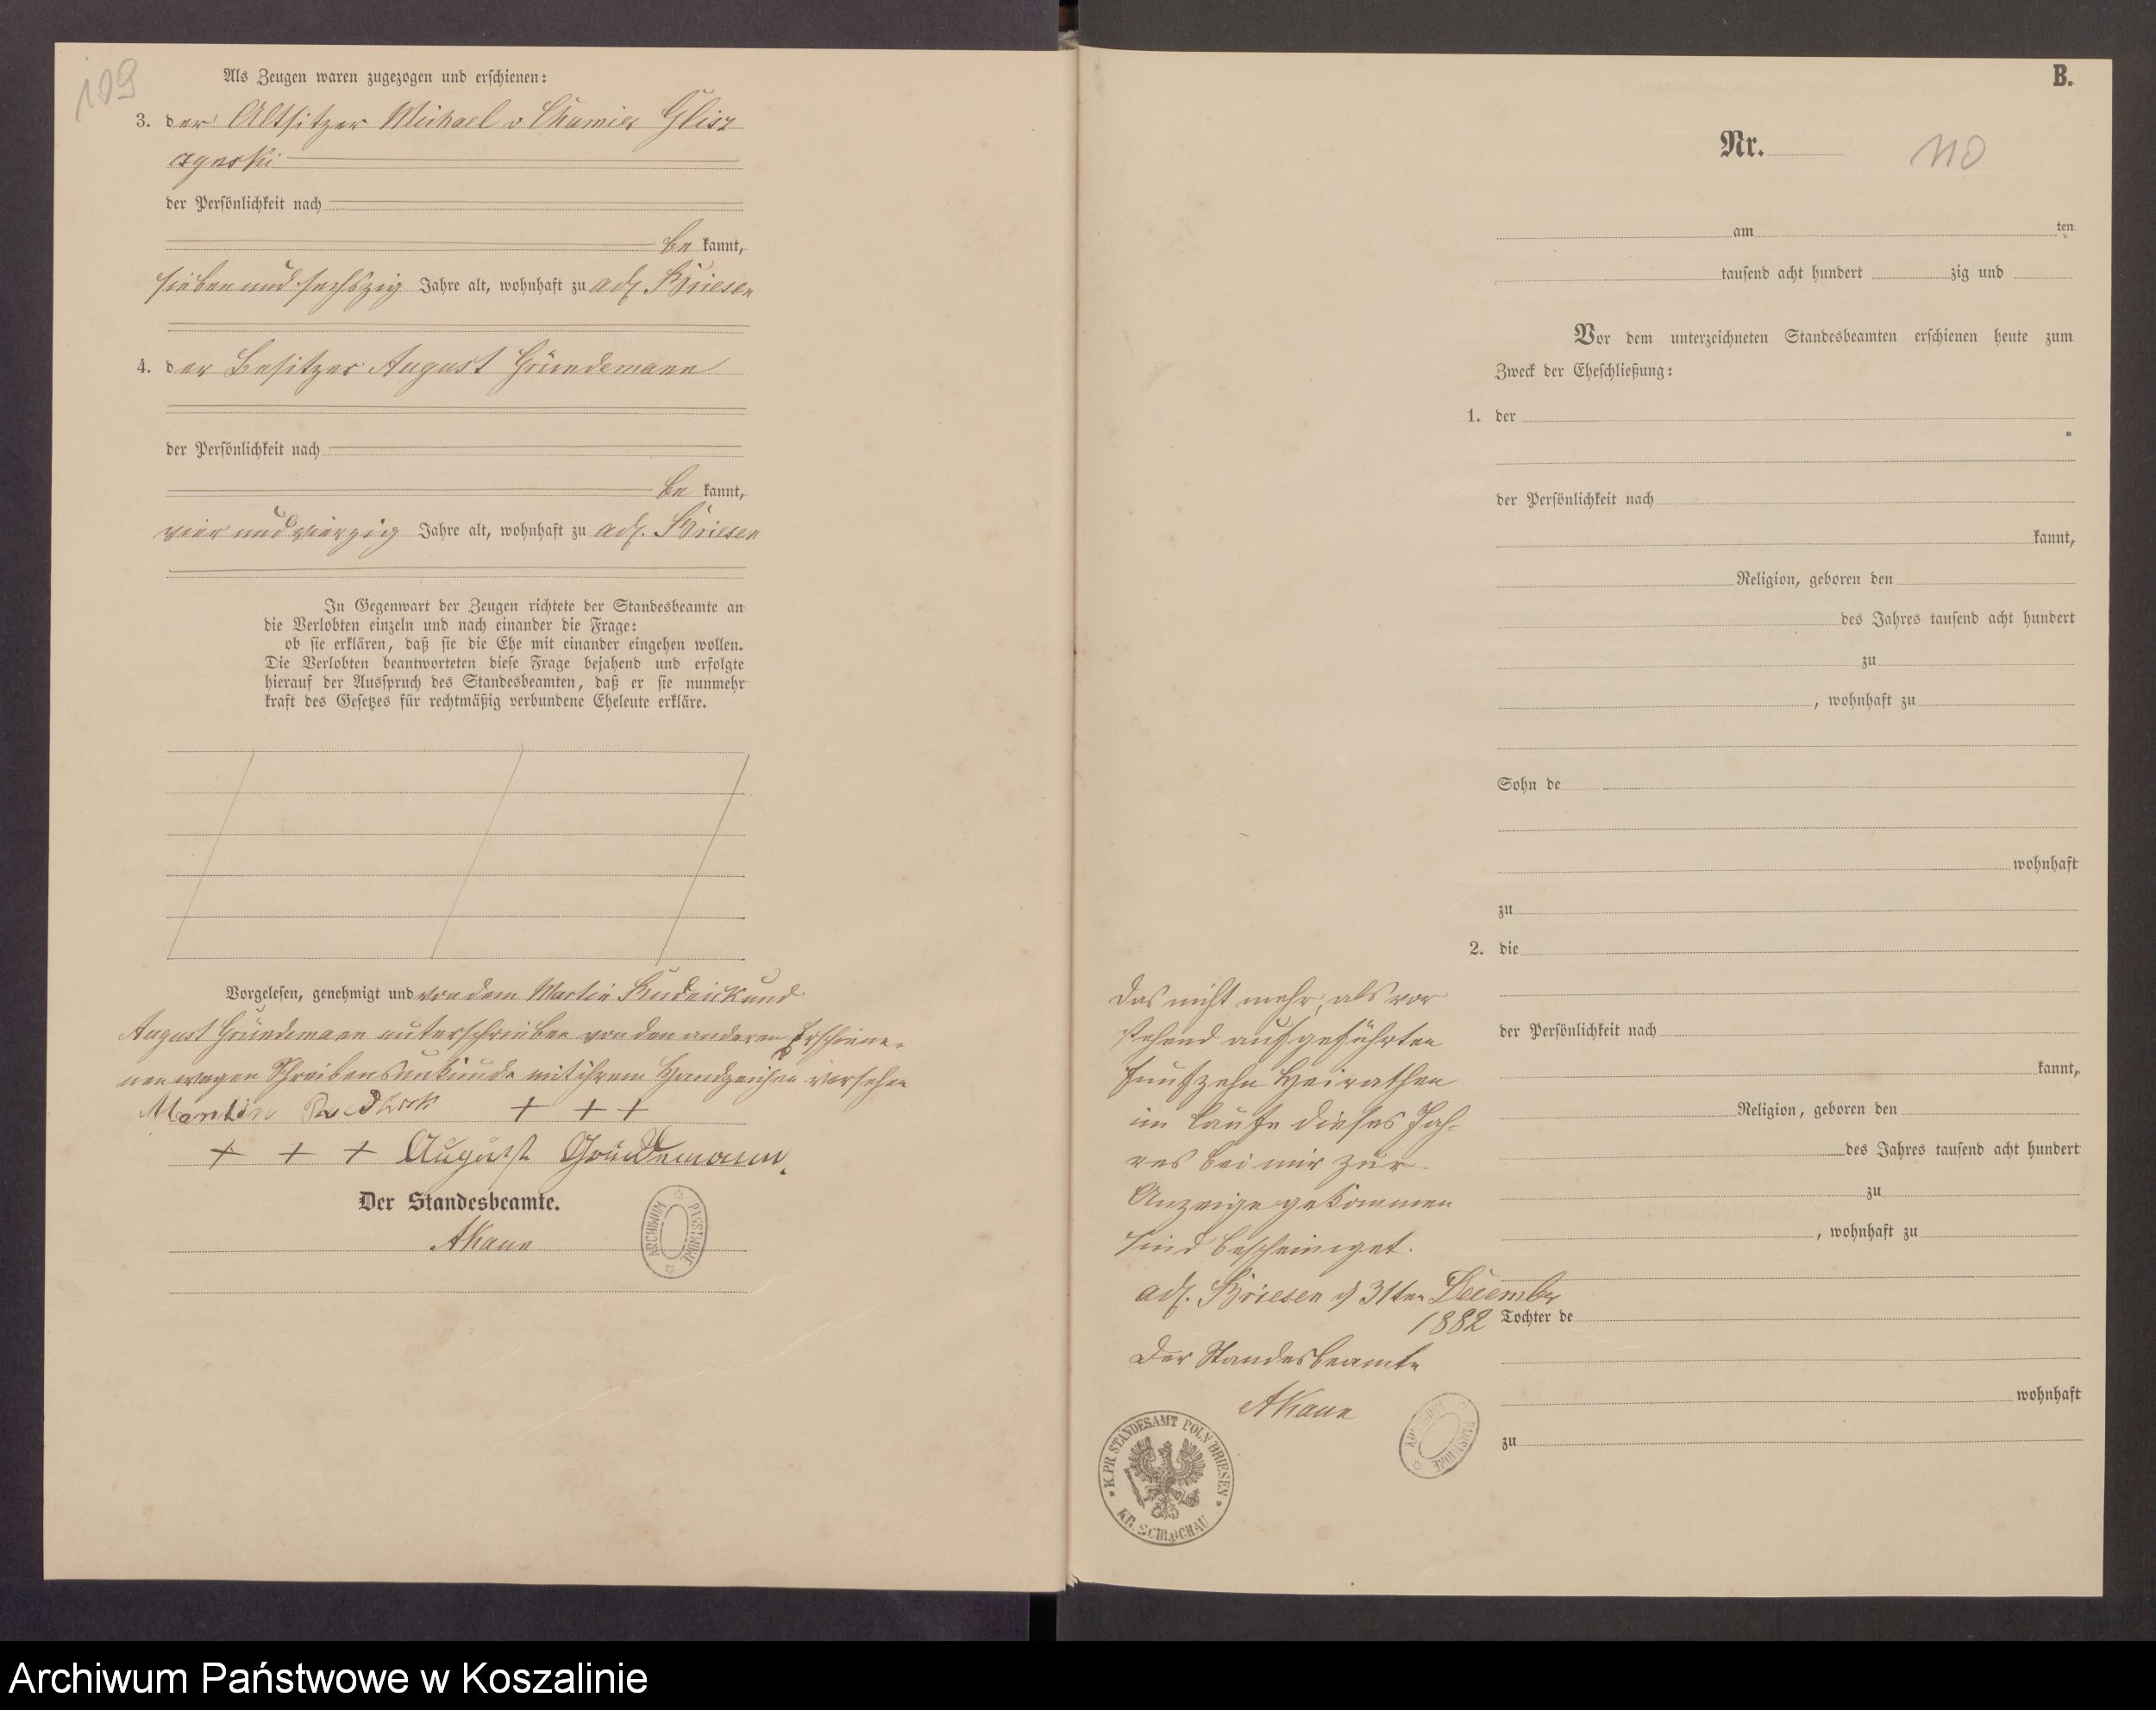 109
Als Zeugen waren zugezogen und erschienen:
3. der Altsitzer Michael v Chamier Glisz
czynski
der Persönlichkeit nach
be kannt,
sieben und sechszig Jahre alt, wohnhaft zu adl. Briesen
4. der Besitzer August Gründemann
der Persönlichkeit nach
be kannt,
vier und vierzig Jahre alt, wohnhaft zu adl. Briesen
In Gegenwart der Zeugen richtete der Standesbeamte an
die Verlobten einzeln und nach einander die Frage:
ob sie erklären, daß sie die Ehe mit einander eingehen wollen.
Die Verlobten beantworteten diese Frage bejahend und erfolgte
hierauf der Ausspruch des Standesbeamten, daß er sie nunmehr
kraft des Gesetzes für rechtmäßig verbundene Eheleute erkläre.
Vorgelesen, genehmigt und von dem Martin und
August Gründemann unterschrieben von den anderen Erschiene-
nen wegen Schreibensunkunde mit ihrem Handzeichen versehen
Martin + + +
+ + + August Gründemann.
Der Standesbeamte.
AKaun
ARCHIWUM PAŃSTWOWE
B.
Nr. 110
am ten
tausend acht hundert zig und
Vor dem unterzeichneten Standesbeamten erschienen heute zum
Zweck der Eheschließung:
1. der
der Persönlichkeit nach
kannt,
Religion, geboren den
des Jahres tausend acht hundert
zu
, wohnhaft zu
Sohn de
wohnhaft
zu
2. die
der Persönlichkeit nach
kannt,
Religion, geboren den
des Jahres tausend acht hundert
zu
, wohnhaft zu
Tochter de
wohnhaft
zu
Das nicht mehr, als vor
stehend aufgeführten
fünfzehn Heirathen
im Laufe dieses Jah-
res bei mir zur
Anzeige gekommen
sind bescheiniget.
adl. Briesen d 31ten December
1882
Der Standesbeamte
AKaun
K. PR. STANDESAMT POLN BRIESEN
KR. SCHLOCHAU
ARCHIWUM PAŃSTWOWE
Archiwum Państwowe w Koszalinie